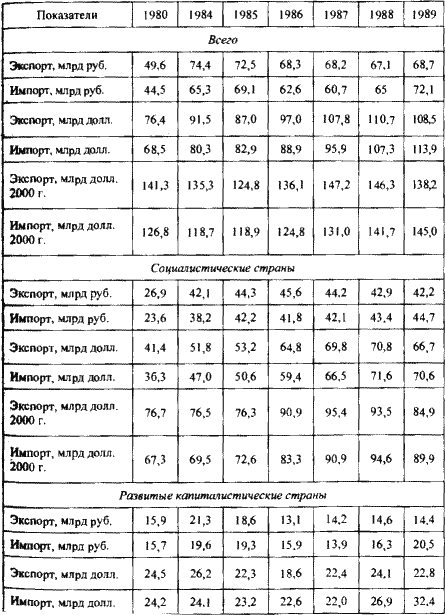 Показатели 1980 1984 1985 1986 1987 1988 1989
Всего
Экспорт, млрд руб. 49,6 74,4 72,5 68,3 68,2 67,1 68,7
Импорт, млрд руб. 44,5 65,3 69,1 62,6 60,7 65 72,1
Экспорт, млрд долл. 76,4 91,5 87,0 97,0 107,8 110,7 108,5
Импорт, млрд долл. 68,5 80,3 82,9 88,9 95,9 107,3 113,9
Экспорт, млрд долл. 2000 г. 141,3 135,3 124,8 136,1 147,2 146,3 138,2
Импорт, млрд долл. 2000 г. 126,8 118,7 118,9 124,8 131,0 141,7 145,0
Социалистические страны
Экспорт, млрд руб. 26,9 42,1 44,3 45,6 44,2 42,9 42,2
Импорт, млрд руб. 23,6 38,2 42,2 41,8 42,1 43,4 44,7
Экспорт, млрд долл. 41,4 51,8 53,2 64,8 69,8 70,8 66,7
Импорт, млрд долл. 36,3 47,0 50,6 59,4 66,5 71,6 70,6
Экспорт, млрд долл. 2000 г. 76,7 76,5 76,3 90,9 95,4 93,5 84,9
Импорт, млрд долл. 2000 г. 67,3 69,5 72,6 83,3 90,9 94,6 89,9
Развитые капиталистические страны
Экспорт, млрд руб. 15,9 21,3 18,6 13,1 14,2 14,6 14,4
Импорт, млрд руб. 15,7 19,6 19,3 15,9 13,9 16,3 20,5
Экспорт, млрд долл. 24,5 26,2 22,3 18,6 22,4 24,1 22,8
Импорт, млрд долл. 24,2 24,1 23,2 22,6 22,0 26,9 32,4